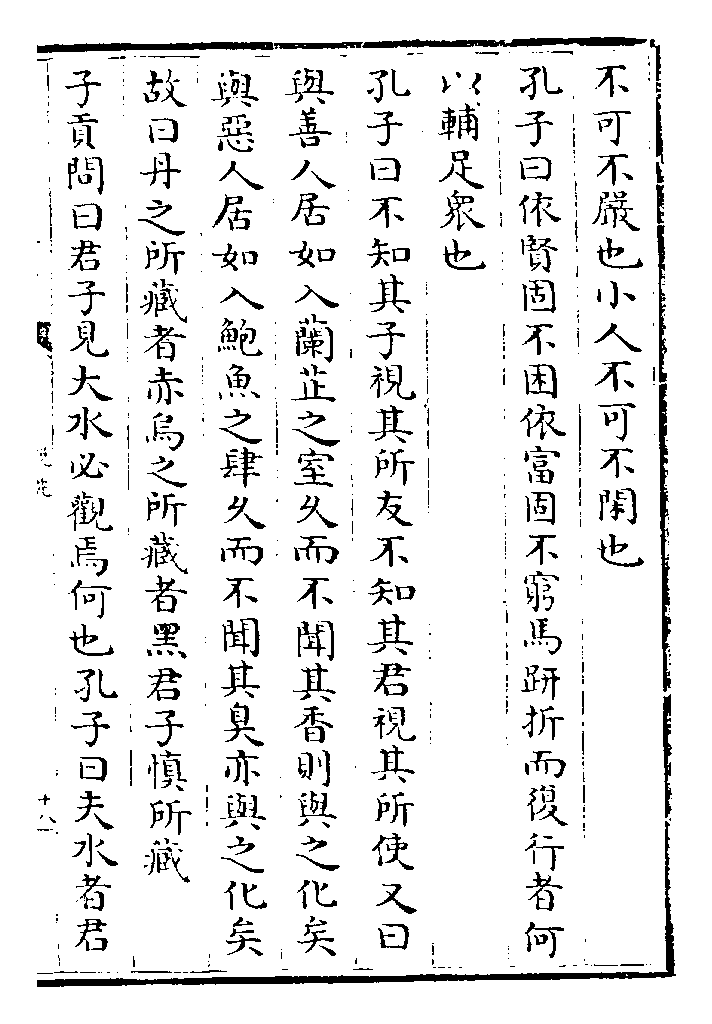 不可不嚴也小人不可不閑也
孔子曰依賢固不困依富固不窮馬趼折而復行者何
以輔足衆也
孔子曰不知其子視其所友不知其君視其所使又曰
與善人居如入蘭芷之室乆而不聞其香則與之化矣
與惡人居如入鮑魚之肆乆而不聞其臭亦與之化矣
故曰丹之所藏者赤烏之所藏者黑君子慎所藏
子貢問曰君子見大水必觀焉何也孔子曰夫水者君
十八